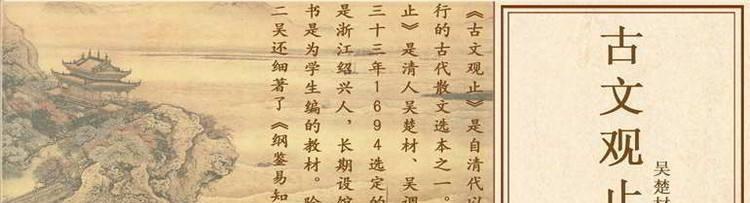 古文观止
吴楚材
《古文观止》是自清代以
行的古代散文选本之一。
止》是清人吴楚材、吴调
三十三年1694选定的
是浙江绍兴人，长期设馆
书是为学生编的教材。除
二吴还细著了《纲鉴易知